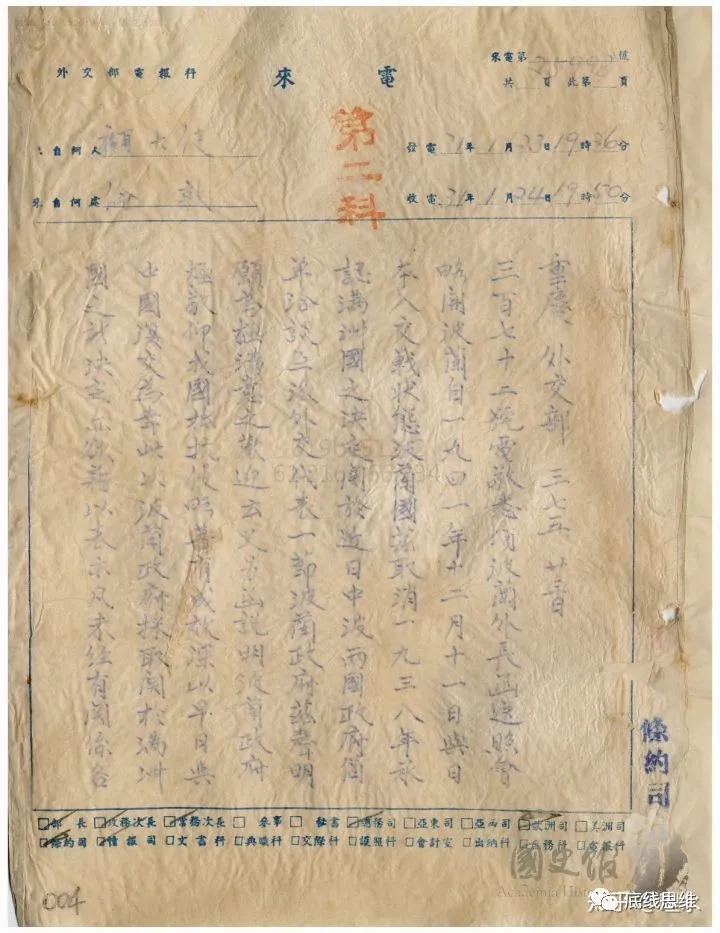 外交部電報科
來電
來電第 號
共 頁 此第 頁
第二科
來自何人 顧大使
來自何處
發電 31年1月23日19時36分
收電 31年1月24日19時50分
重慶 外交部 三七五 廿三日
三百七十二號電敬悉頃波蘭外長函送照會
略開波蘭自一九四一年十二月十一日與日
本入交戰狀態波蘭國茲取消一九三八年承
認滿洲國之決定關於近日中波兩國政府間
單洽談互派外交代表一節波蘭政府茲聲明
願為極滿意之歡迎云又另函說明波蘭政府
極敬仰我國抵抗侵略著有成效深以早日與
中國換文為幸此以波蘭政府採取關於滿洲
國之計決定亦欲藉以表示凡未經有關係各
條約司
部長 政務次長 常務次長 參事 秘書 總務司 亞東司 亞西司 歐洲司 美洲司
條約司 情報司 文書科 典職科 交際科 護照科 會計室 出納科 庶務科 電報科
國史館
Academia Historica
004
底线思维